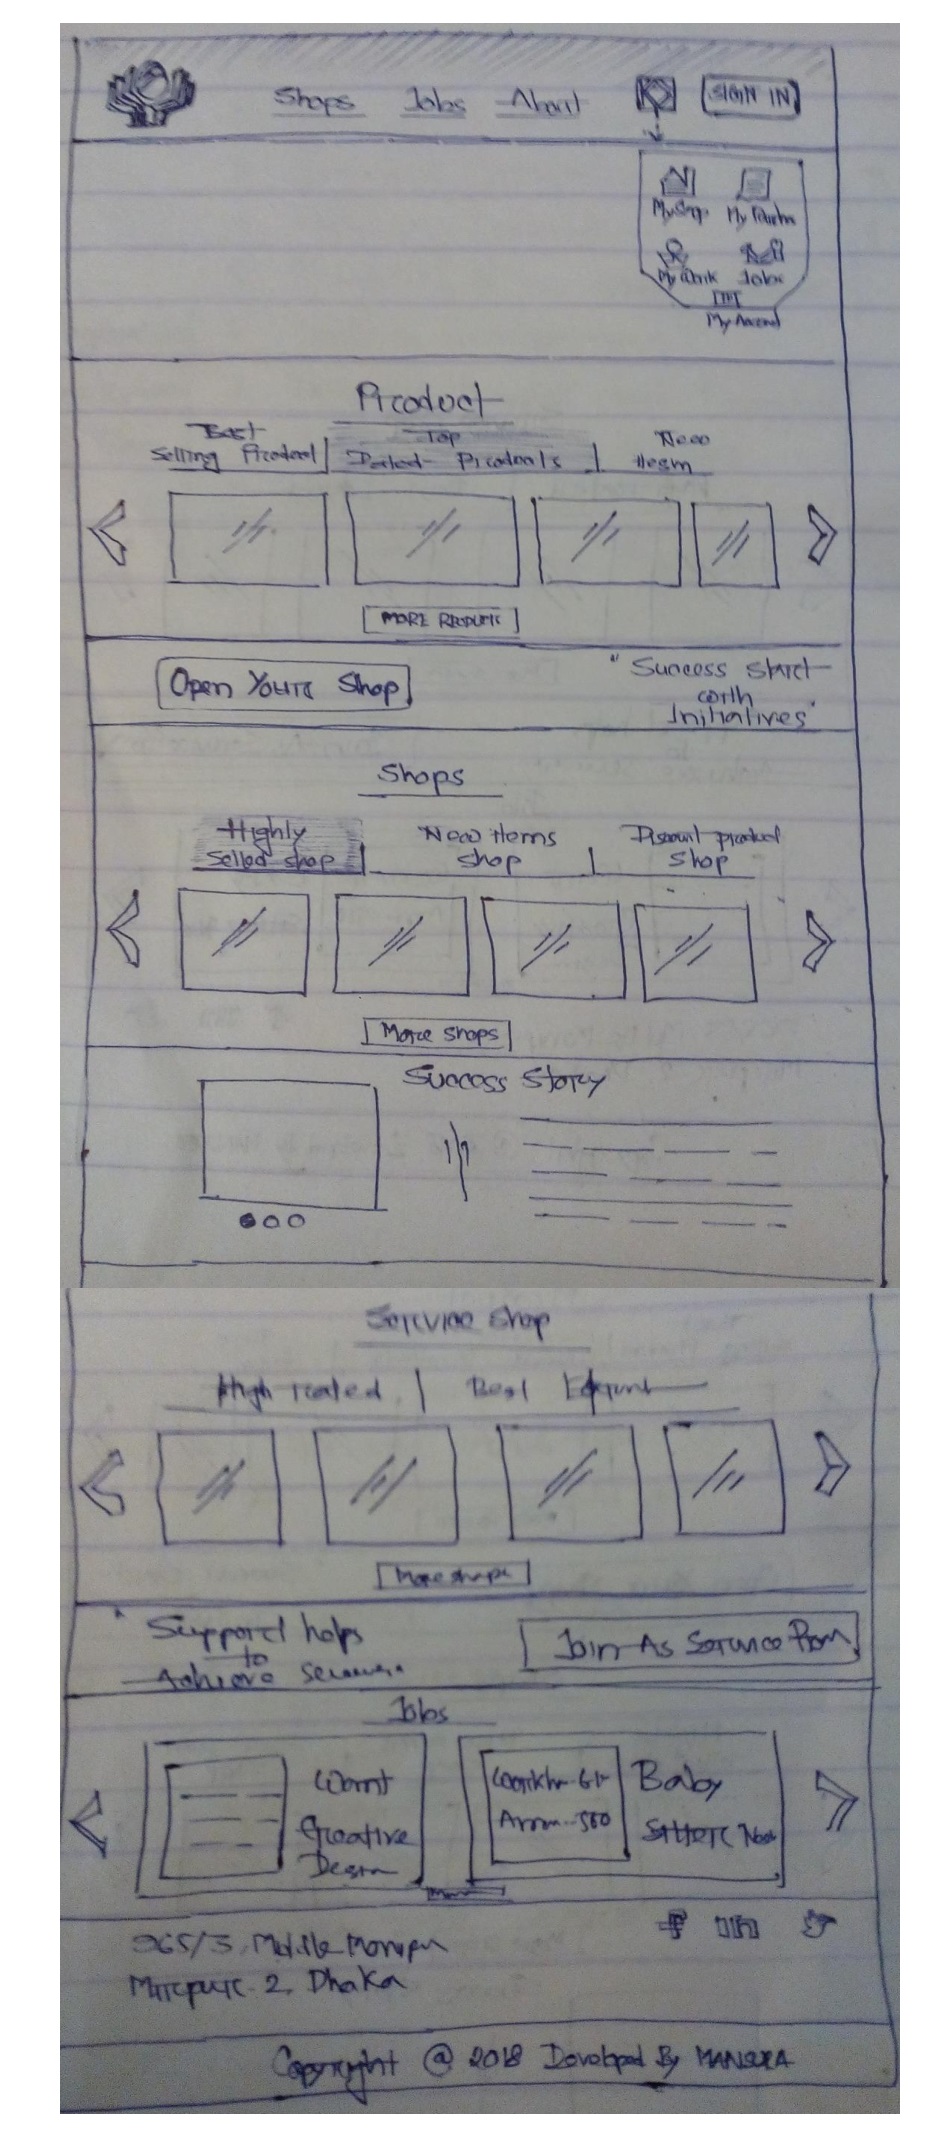 Shops Jobs About SIGN IN
My Shop My
My Work Jobs
My Account
Product
Best
Selling Product
Top
Products
New
Item
MORE PRODUCTS
Open Your Shop
" Success Start
with
Initiatives"
Shops
Highly
Selled shop
New Items
shop
Discount product
shop
More Shops
Success Story
Service Shop
High rated Best
More shops
" Support helps
to
Achieve
Join As Service
Jobs
Want
Creative
Baby
Sitter
/3, Middle
Mirpur-2, Dhaka
Copyright @ 2018 Developed By MANSURA